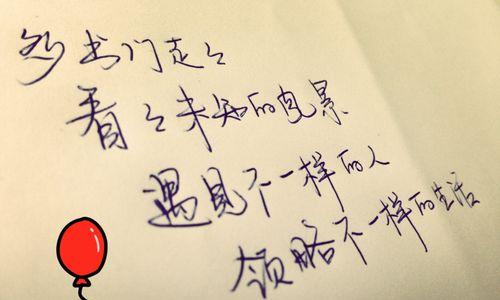 多出门走々
看々未知的风景
遇见不一样的人
领略不一样的生活